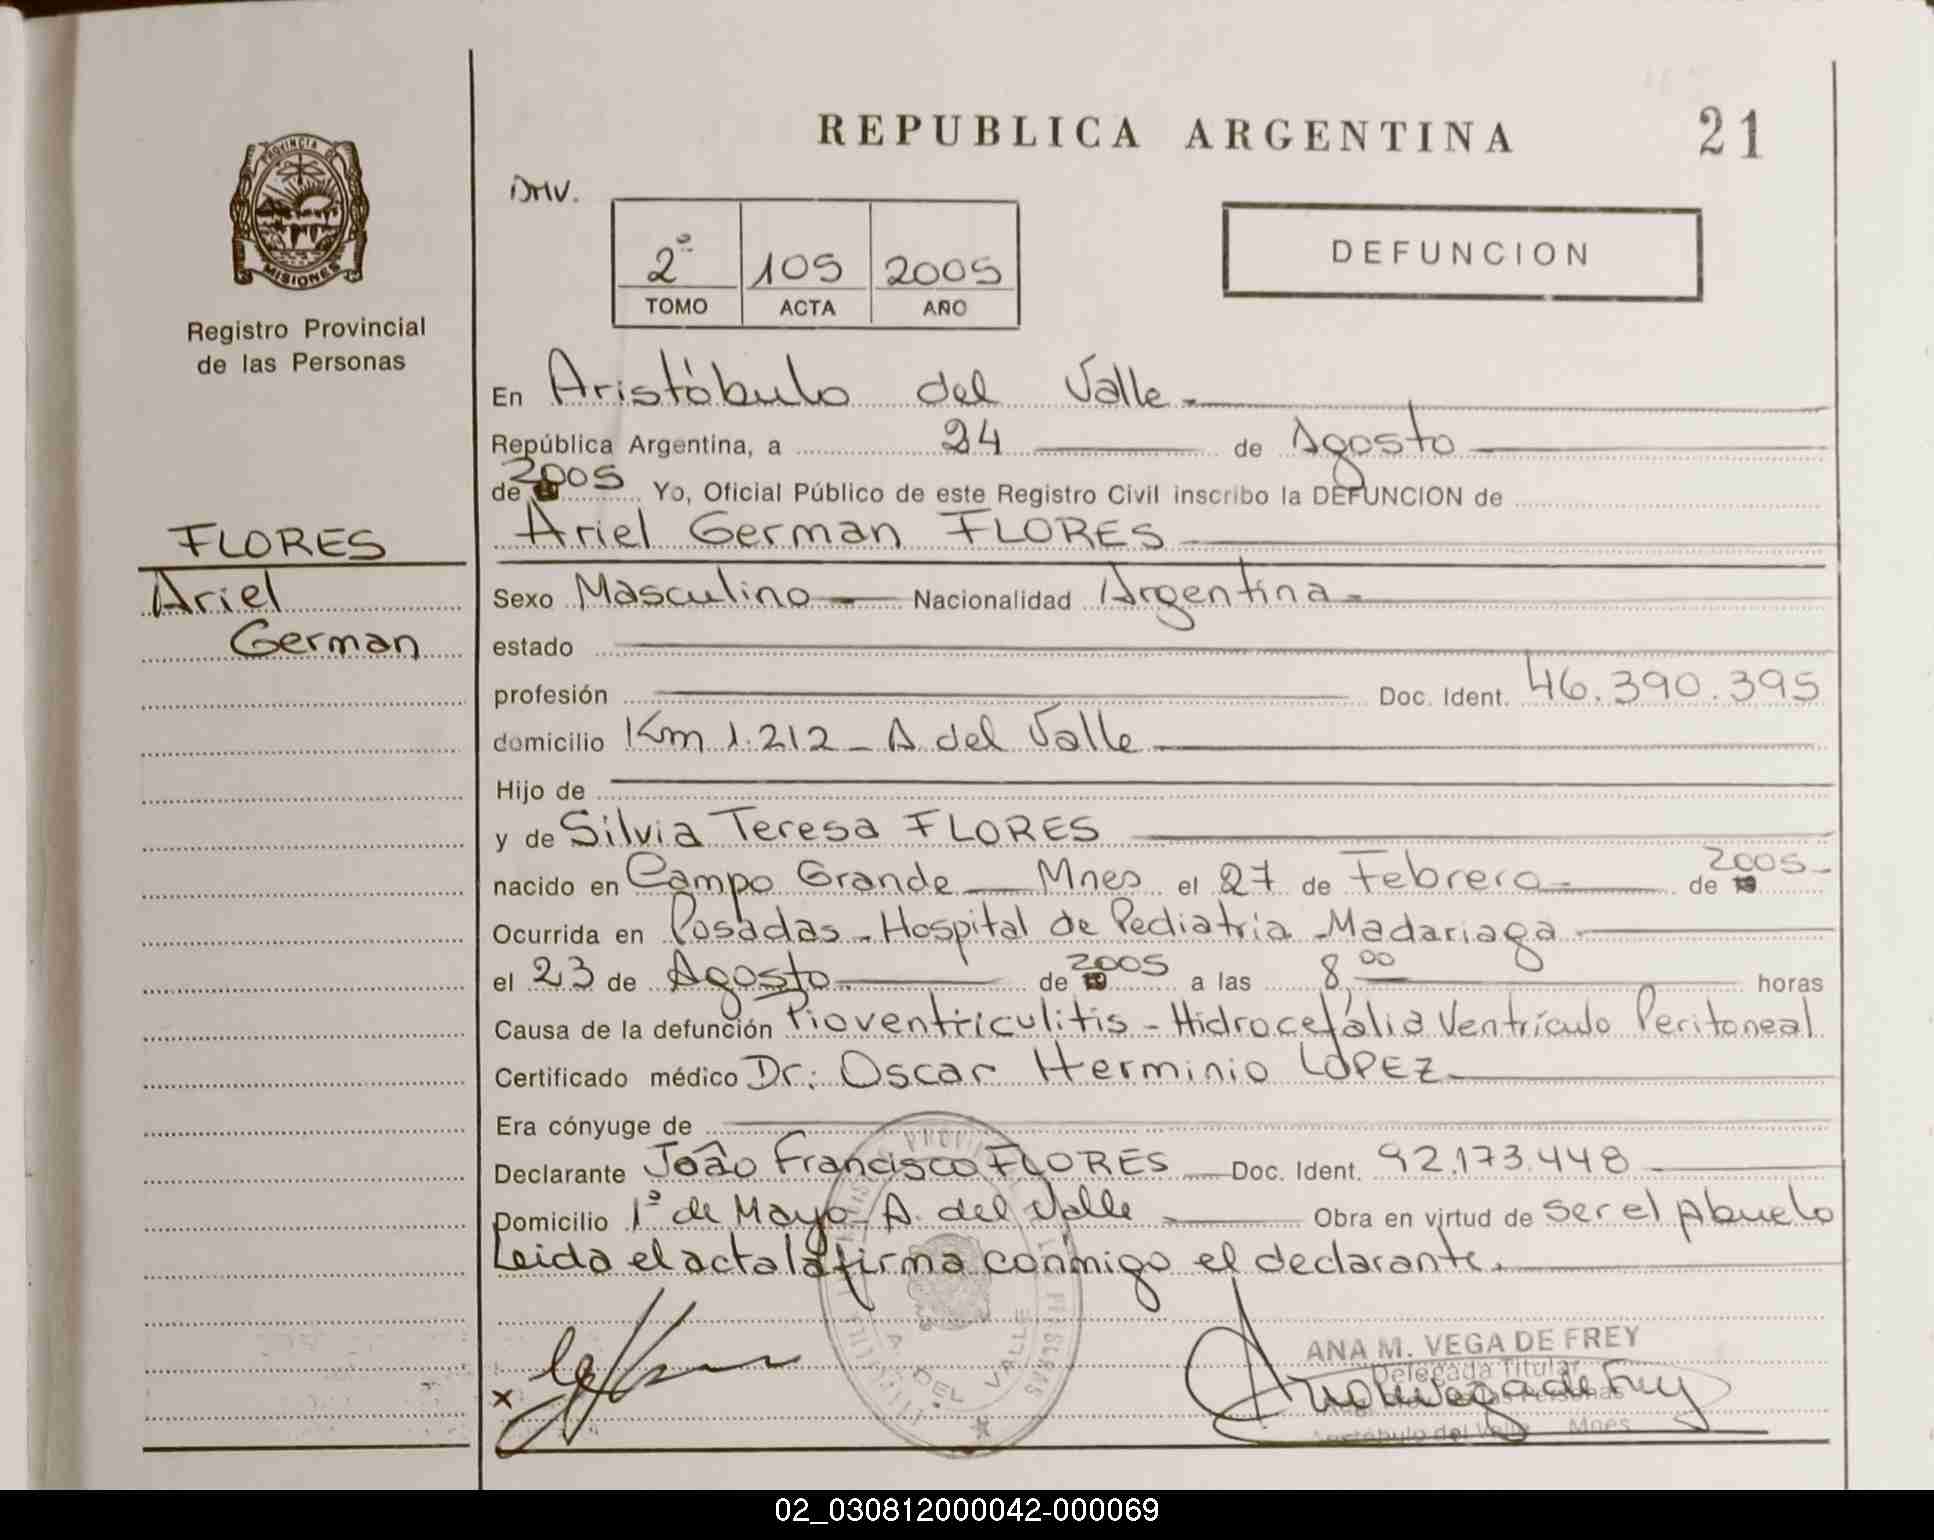 REPUBLICA ARGENTINA
21
PROVINCIA DE
MISIONES
Registro Provincial
de las Personas
DHV.
2º 105 2005
TOMO ACTA AÑO
DEFUNCION
En Aristóbulo del Valle.
República Argentina, a 24 de Agosto
de 2005 Yo, Oficial Público de este Registro Civil inscribo la DEFUNCION de
FLORES
Ariel German FLORES
Ariel
German
Sexo Masculino Nacionalidad Argentina
estado
profesión Doc. Ident. 46.390.395
domicilio Km 1.212 - A. del Valle
Hijo de
y de Silvia Teresa FLORES
nacido en Campo Grande - Mnes el 27 de Febrero de 2005
Ocurrida en Posadas - Hospital de Pediatría - Madariaga
el 23 de Agosto de 2005 a las 8,00 horas
Causa de la defunción Pioventriculitis - Hidrocefália Ventrículo Peritoneal
Certificado médico Dr: Oscar Herminio LOPEZ
Era cónyuge de
Declarante João Francisco FLORES Doc. Ident. 92.173.448
Domicilio 1º de Mayo - A. del Valle Obra en virtud de ser el Abuelo
Leida el acta la firma conmigo el declarante.
A. DEL VALLE
ANA M. VEGA DE FREY
Delegada Titular
Aristóbulo del Valle Mnes
x
02_030812000042-000069